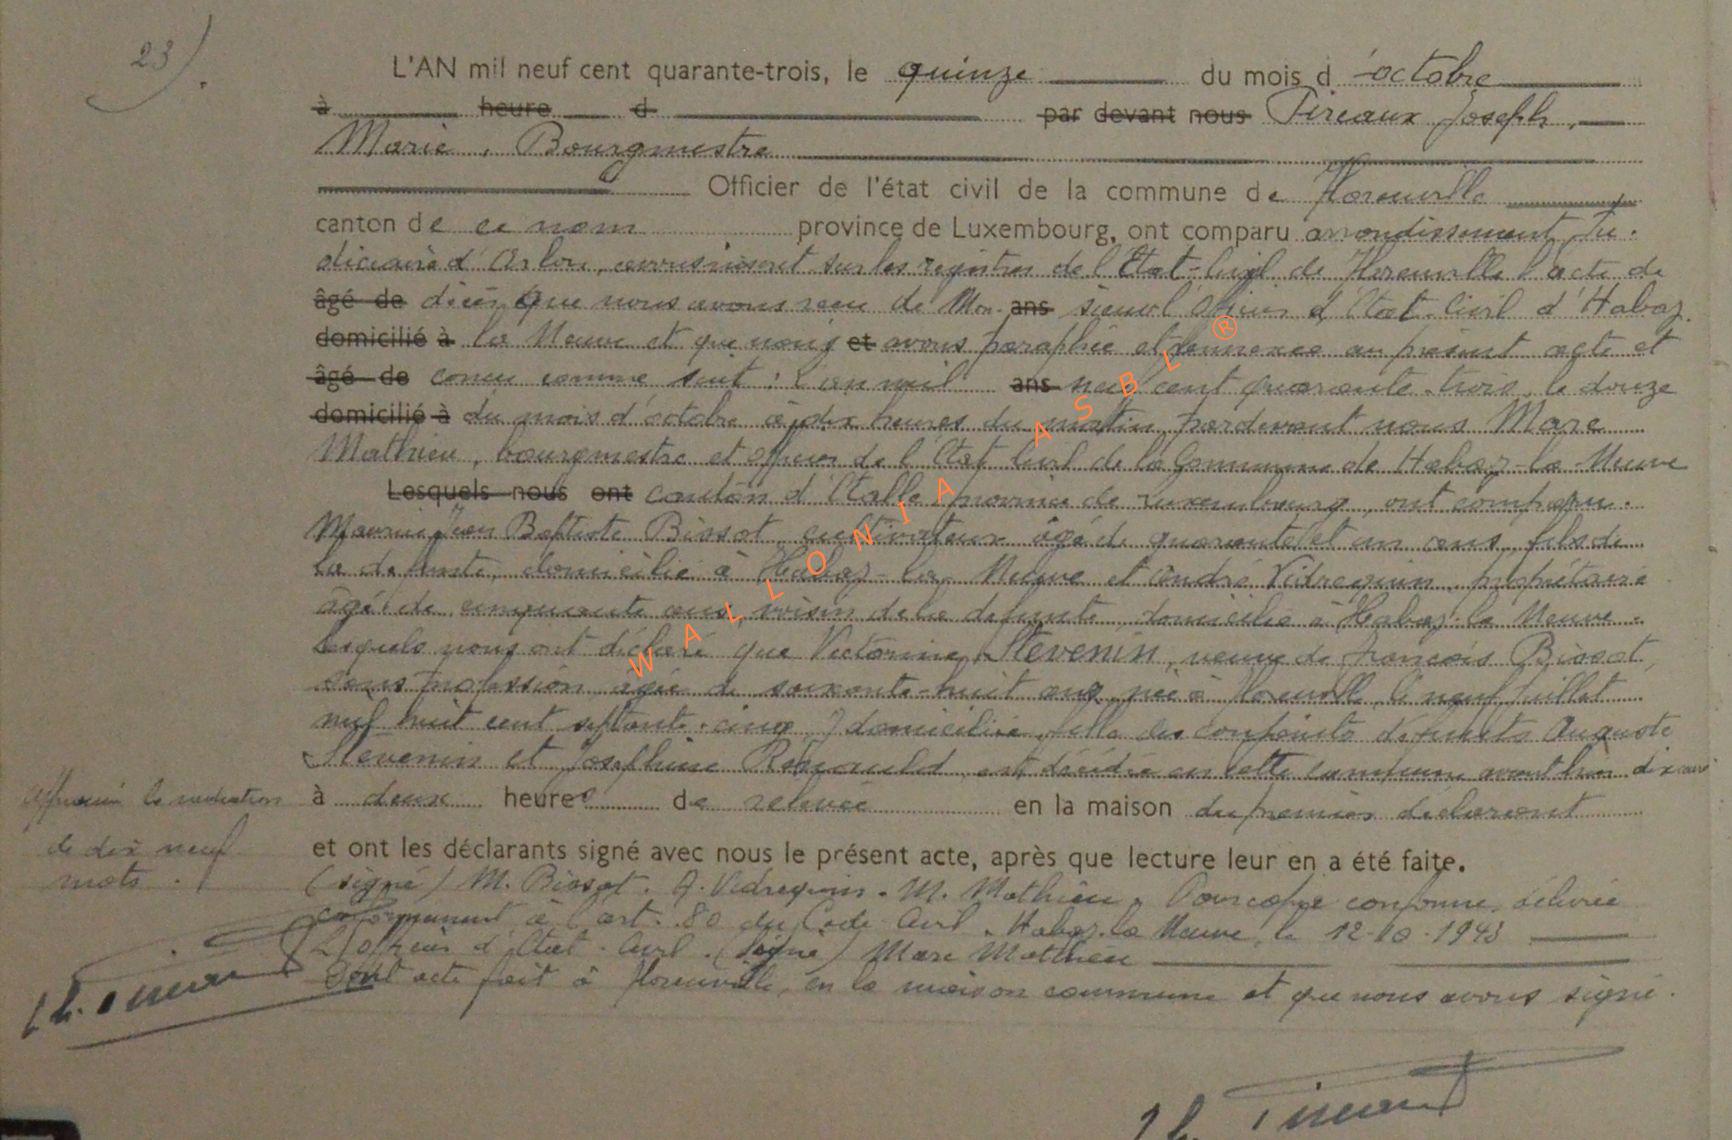 23).
L'AN mil neuf cent quarante-trois, le quinze du mois d'octobre
à heure d par devant nous Pireaux Joseph,
Marie, Bourgmestre
Officier de l'état civil de la commune de Florenville
canton de ce nom province de Luxembourg, ont comparu arrondissement Ju-
diciaire d'Arlon, transcrivons sur les registres de l'Etat-Civil de Florenville l'acte de
âgé de décès que nous avons reçu de Mon- ans sieur l'Officier d'Etat-Civil d'Habay-
domicilié à la Neuve et que nous et avons paraphé et annexé au présent acte et
âgé de conçu comme suit : L'an mil ans neuf cent quarante-trois, le douze
domicilié à du mois d'octobre à dix heures du matin, pardevant nous Marc
Mathieu, bourgmestre et officier de l'Etat Civil de la Commune de Habay-la-Neuve
Lesquels nous ont canton d'Etalle, province de Luxembourg, ont comparu.
Maurice Jean Baptiste Bissot, cultivateur âgé de quarante et un ans, fils de
la défunte, domicilié à Habay-la-Neuve et André Vidrequin, propriétaire
âgé de cinquante ans, voisin de la défunte, domicilié à Habay-la-Neuve.
lesquels nous ont déclaré que Victorine Stevenin, veuve de François Bissot,
sans profession, âgée de soixante-huit ans, née à Florenville, le neuf juillet
mil huit cent septante-cinq, y domiciliée, fille des conjoints défunts Auguste
Stevenin et Joséphine est décédée en cette commune avant hier dix
à deux heures de relevée en la maison du premier déclarant
et ont les déclarants signé avec nous le présent acte, après que lecture leur en a été faite.
(signé) M. Bissot. A. Vidrequin. M. Mathieu. Pour copie conforme, délivrée
conformément à l'art. 80 du Code Civil. Habay-la-Neuve, le 12-10-1943
L'Officier d'Etat-Civil. (Signé) Marc Mathieu
Dont acte fait à Florenville, en la maison commune et que nous avons signé.
Approuvé la radiation
de dix neuf
mots.
WALLONIA ASBL ®